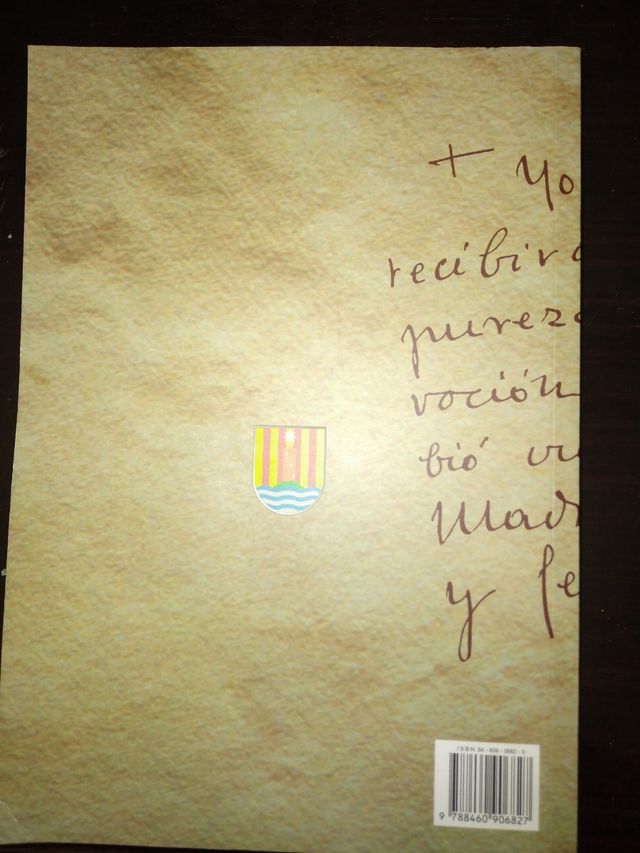 + yo
recibir
pureza
voción
bió vu
Mad
y fe
ISBN 84-609-0682-5
9 788460 906827